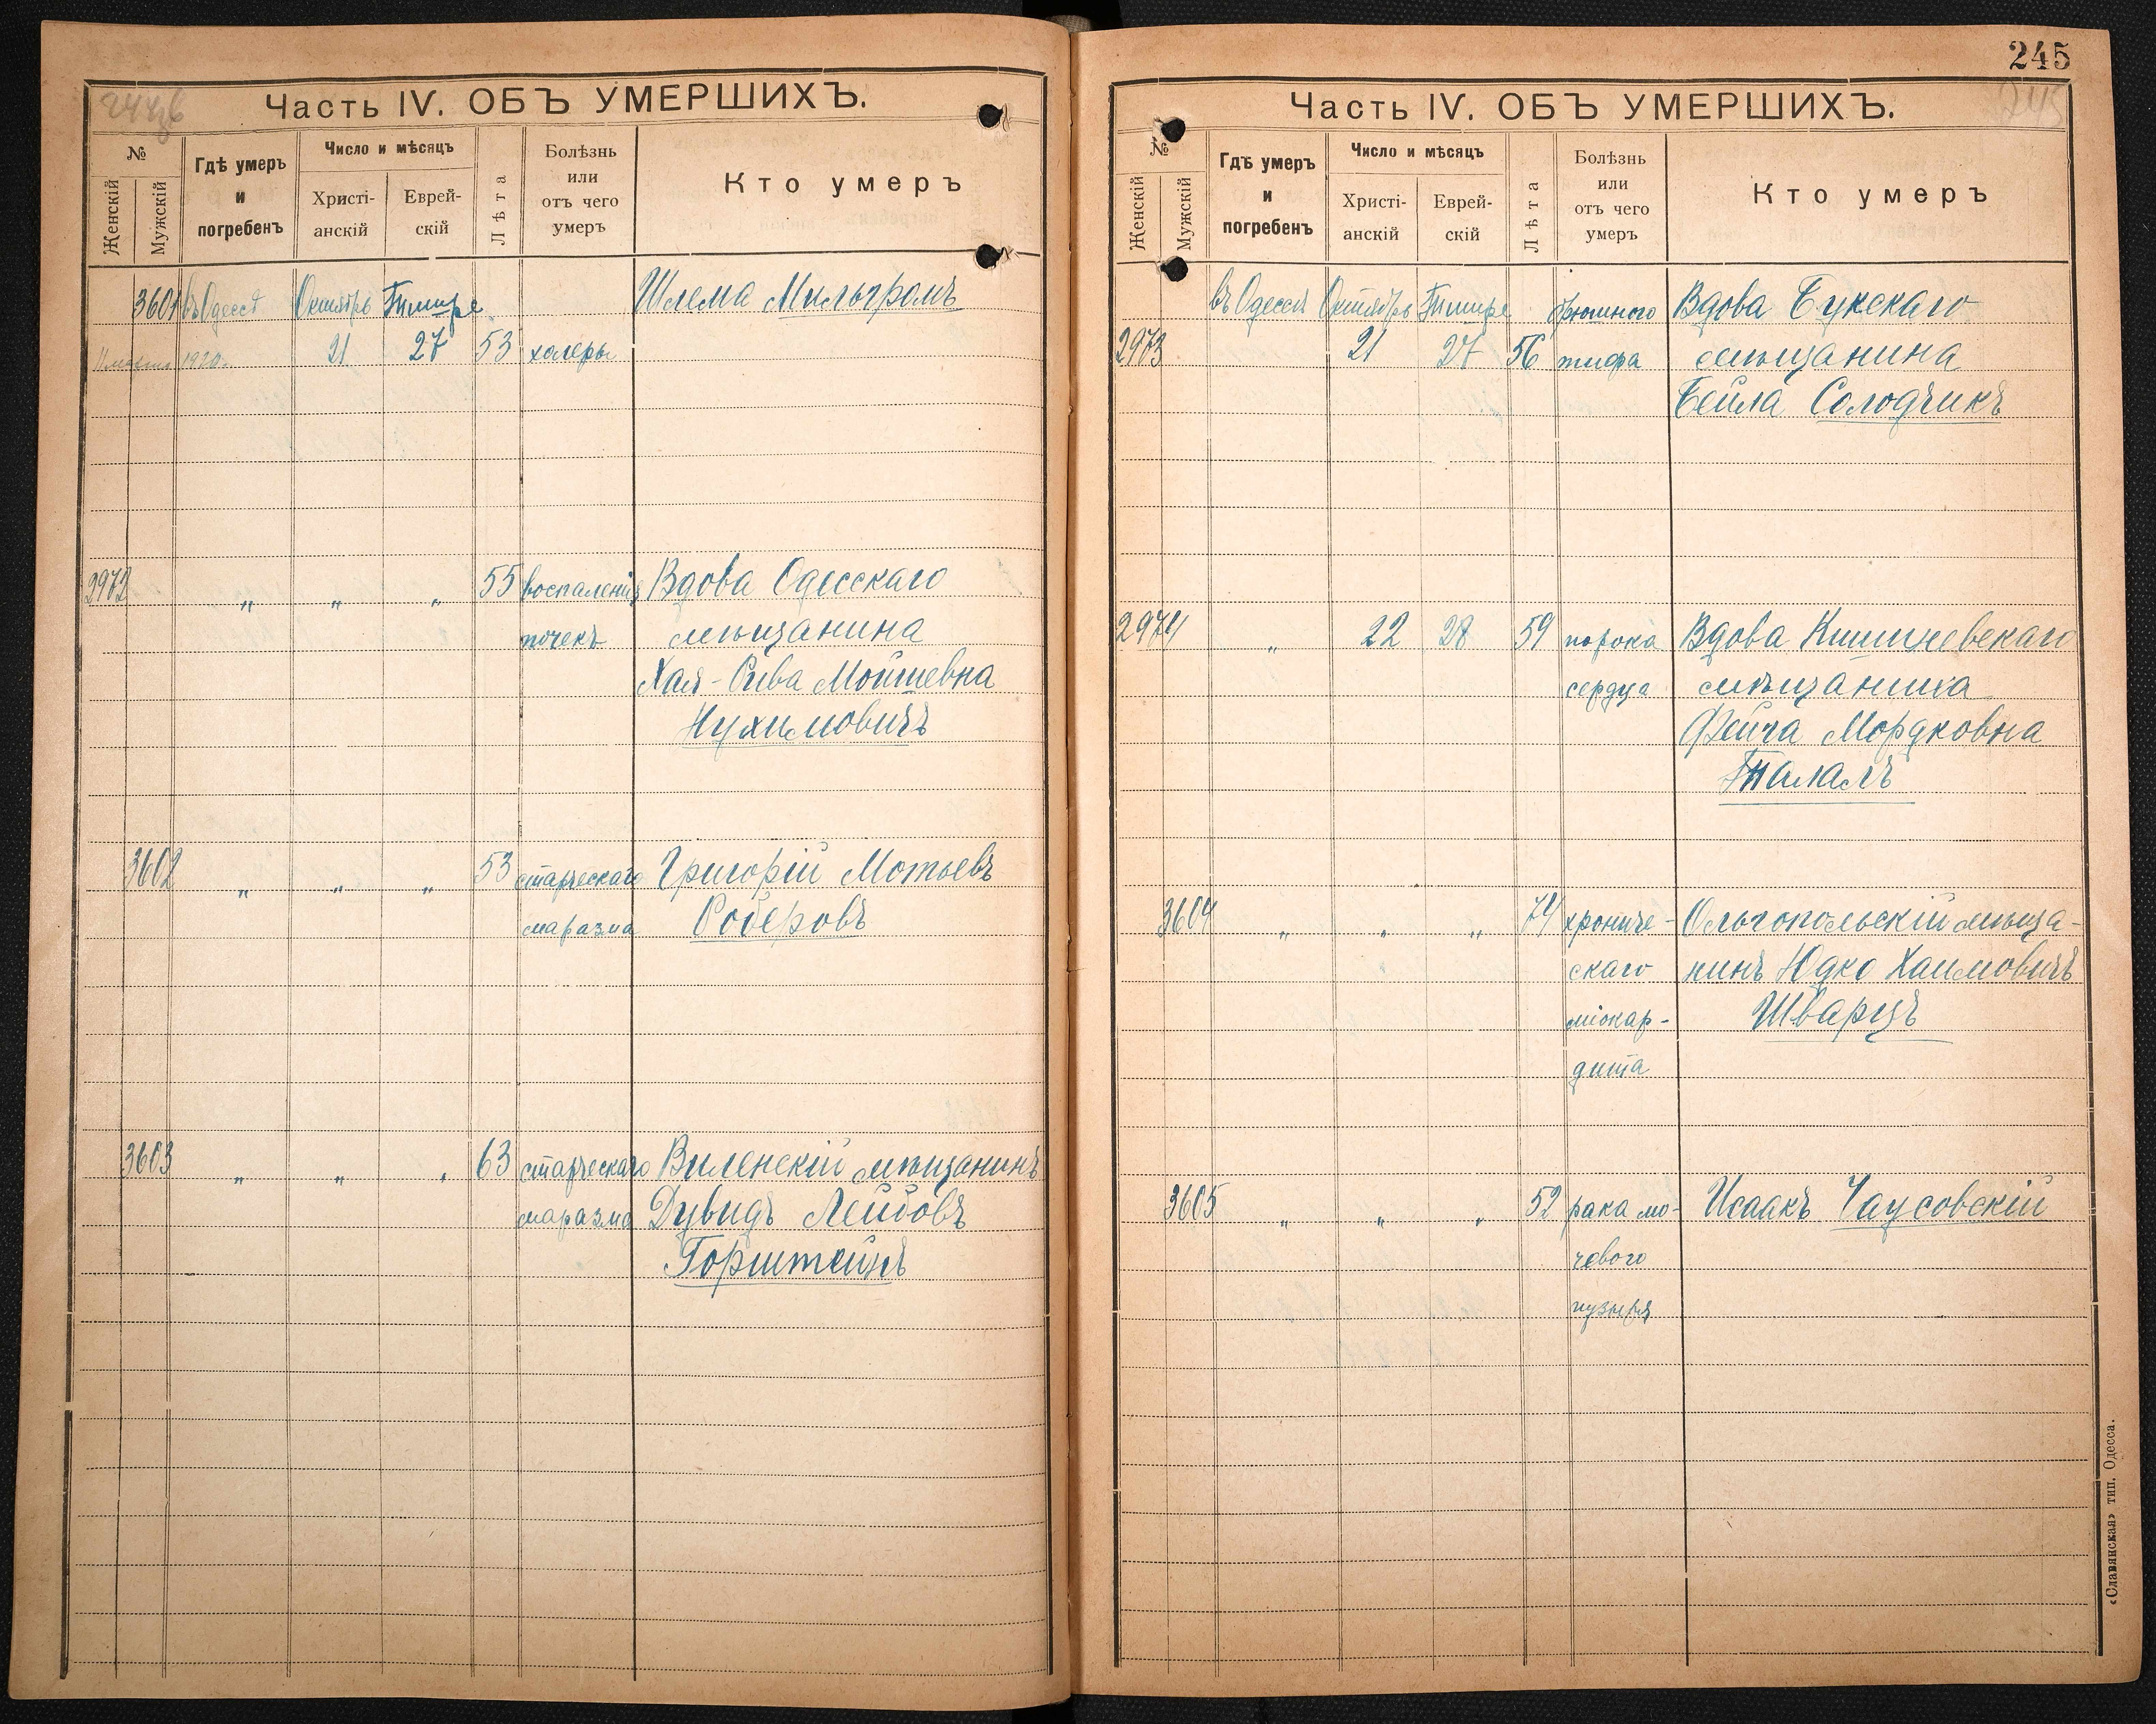 Часть IV. ОБЪ УМЕРШИХЪ.
№
Женскій
Мужскій
Гдѣ умеръ
и
погребенъ
Число и мѣсяцъ
Христі-
анскій
Еврей-
скій
Лѣта
Болѣзнь
или
отъ чего
умеръ
Кто умеръ
3601 въ Одессѣ Октябрь Тишре Шлема Мильгромъ
1920. 21 27 53 холеры
2972 " " " 55 воспаленія Вдова Одесскаго
почекъ мѣщанина
Хая-Рива Мойшевна
Нухимовичъ
3602 " " " 53 старческаго Григорій Мотьевъ
маразма Роберовъ
3603 " " " 63 старческаго Виленскій мѣщанинъ
маразма Дувидъ Лейбовъ
Горштейнъ
245
Часть IV. ОБЪ УМЕРШИХЪ.
№
Женскій
Мужскій
Гдѣ умеръ
и
погребенъ
Число и мѣсяцъ
Христі-
анскій
Еврей-
скій
Лѣта
Болѣзнь
или
отъ чего
умеръ
Кто умеръ
въ Одессѣ Октябрь Тишре брюшного Вдова Букскаго
2973 21 27 56 тифа мѣщанина
Бейла Солодчикъ
2974 " 22 28 59 порока Вдова Кишиневскаго
сердца мѣщанина
Фейга Мордковна
3604 " " " 74 хрониче- Ольгопольскій мѣща-
скаго нинъ Юдко Хаимовичъ
міокар- Шварцъ
дита
3605 " " " 52 рака мо- Исаакъ Чаусовскій
чевого
пузыря
«Славянская» тип. Одесса.